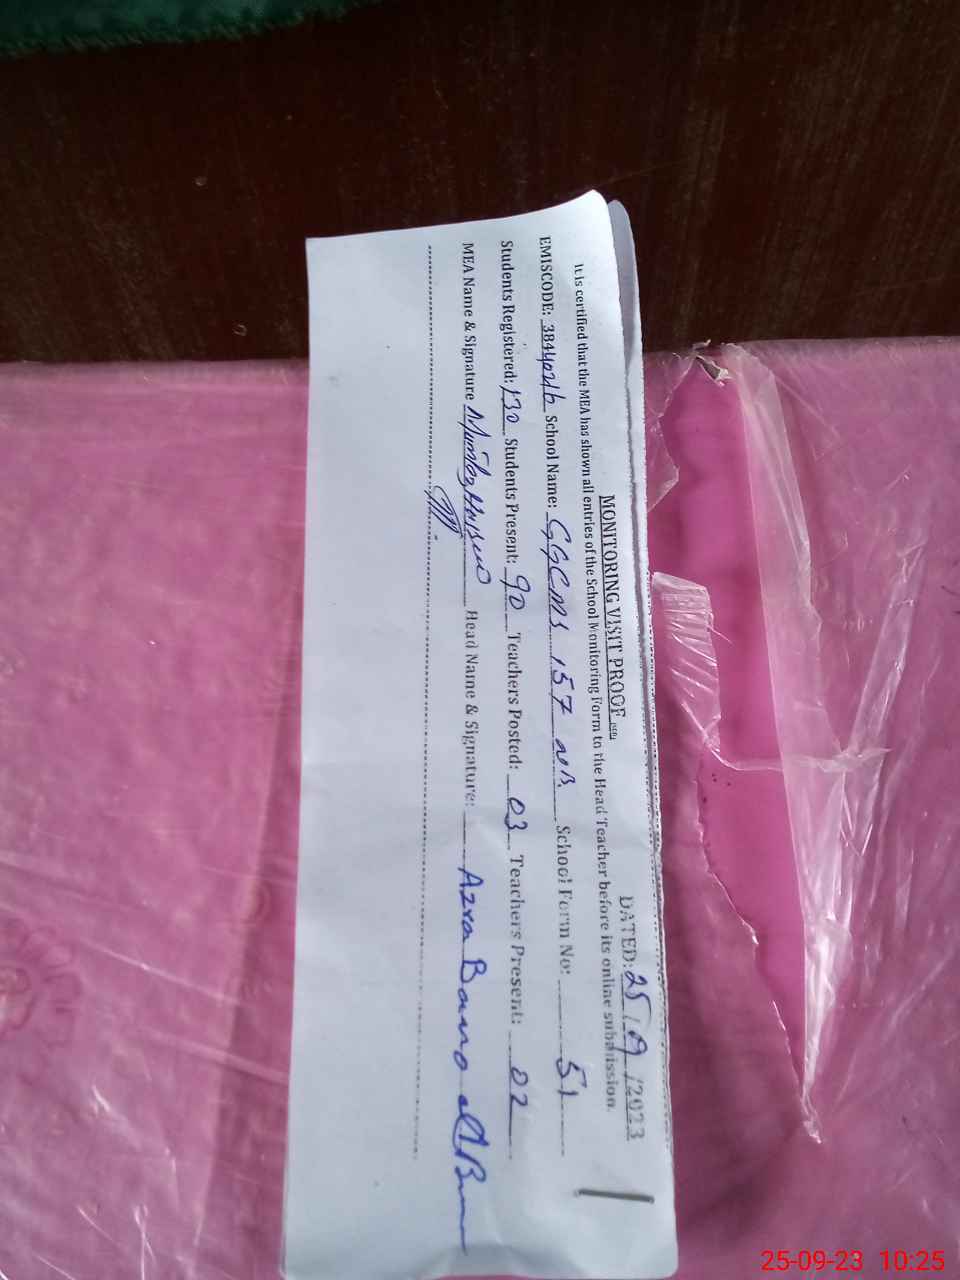 MONITORING VISIT PROOF
DATED: 25/9/2023
It is certified that the MEA has shown all entries of the School Monitoring Form to the Head Teacher before its online submission.
EMISCODE: School Name: GGCMS 157 NB School Form No: 51
Students Registered: 130 Students Present: 90 Teachers Posted: 03 Teachers Present: 02
MEA Name & Signature Head Name & Signature: Azra Bano
25-09-23 10:25